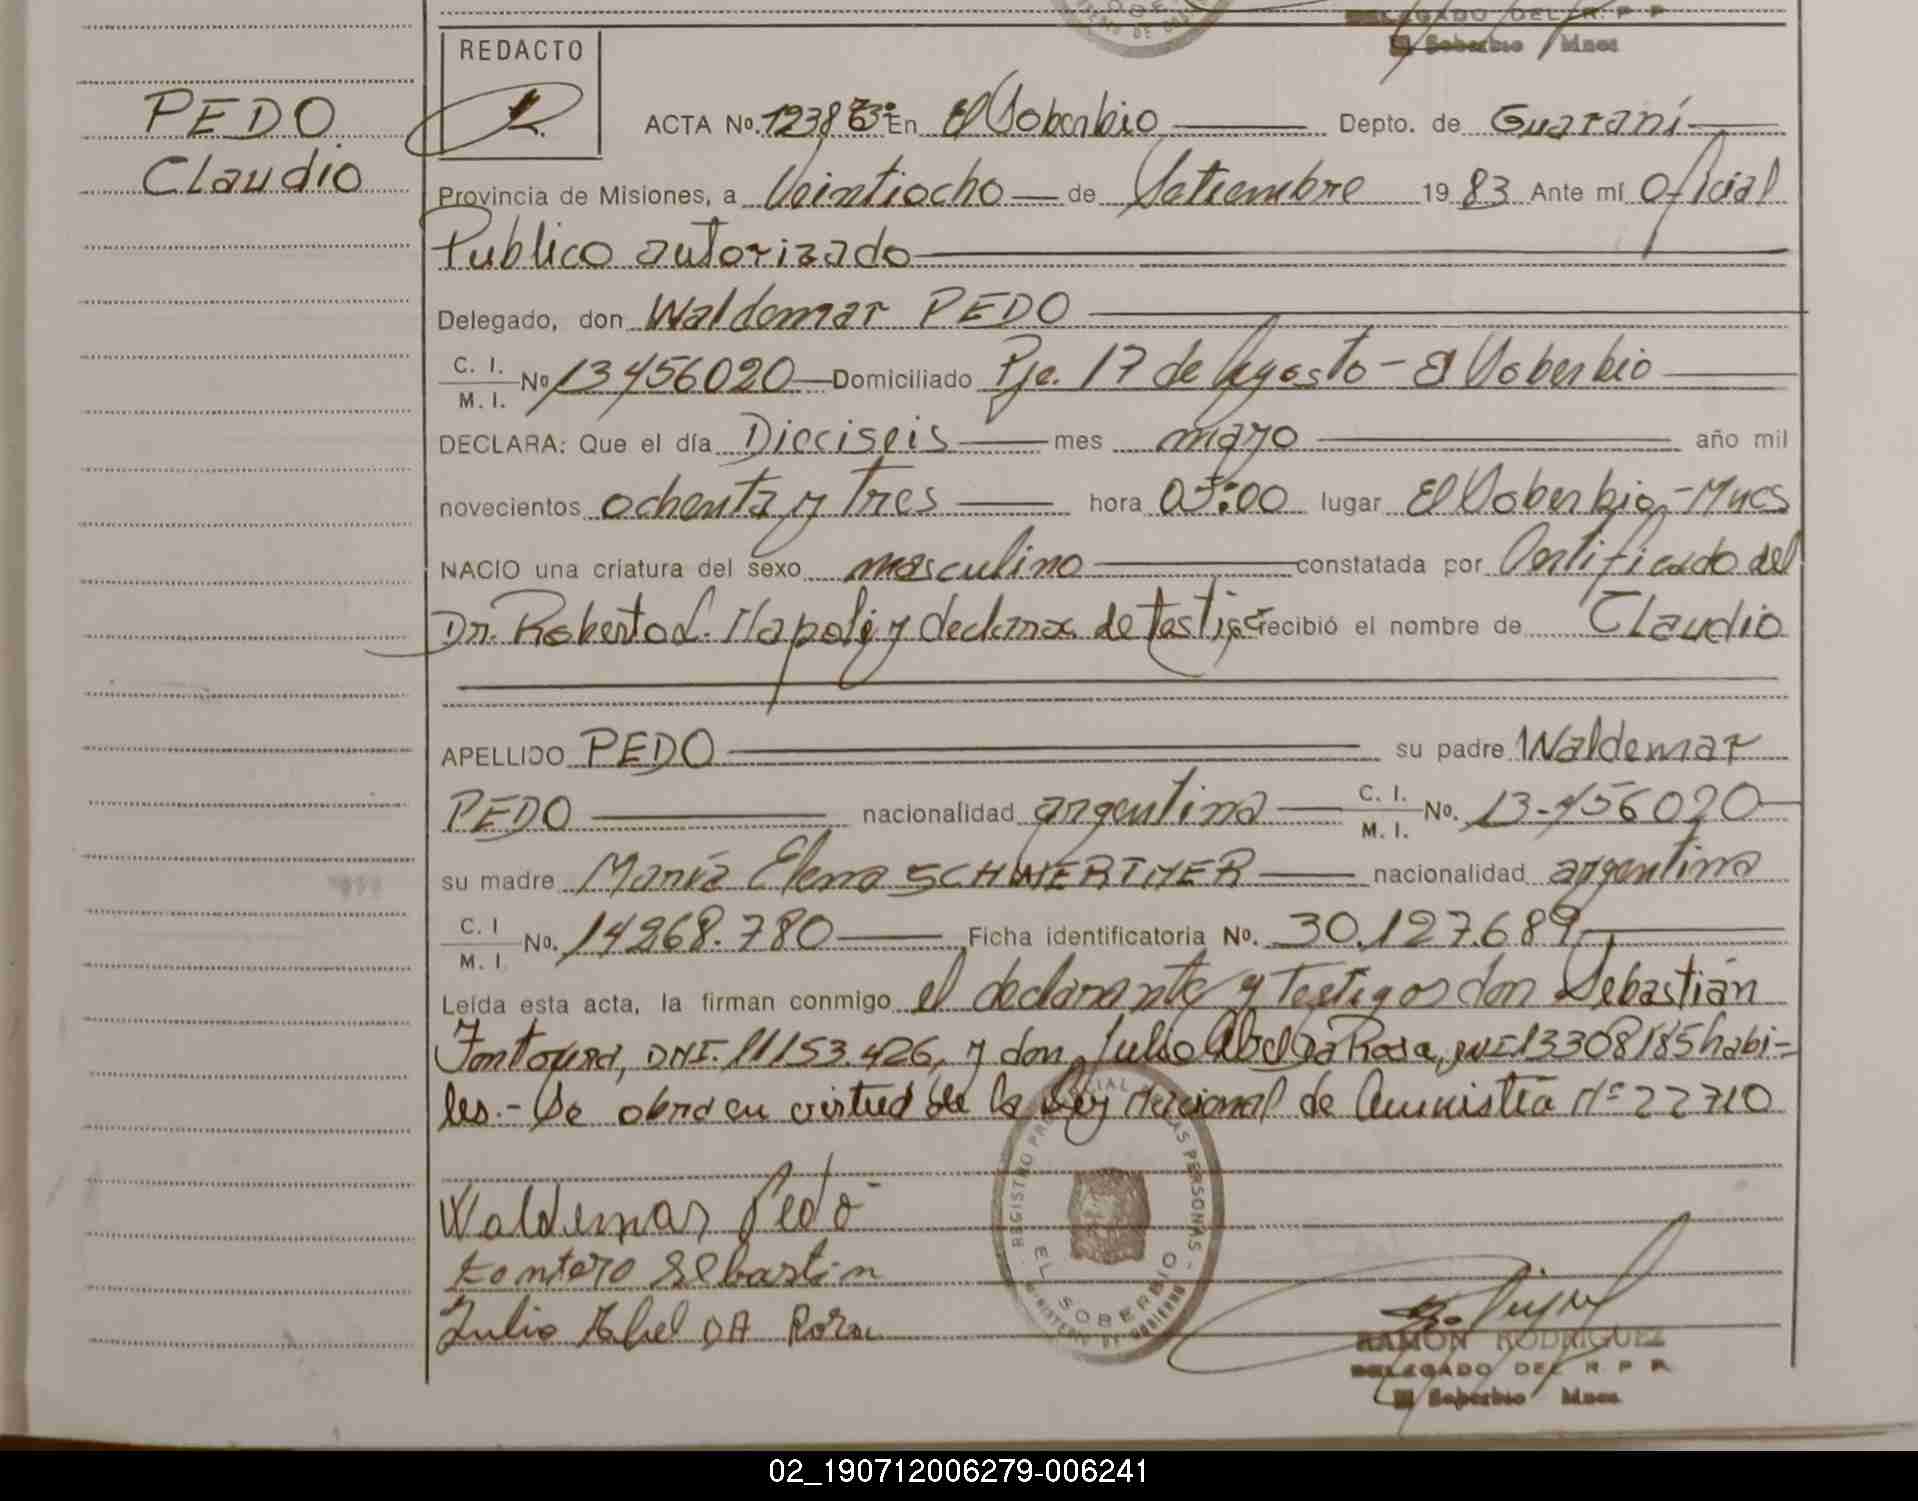 DELEGADO DEL R. P. P.
El Soberbio Mnes
REDACTO
PEDO
Claudio
ACTA No. 1238 En El Soberbio Depto. de Guaraní
Provincia de Misiones, a Veintiocho de Setiembre 1983 Ante mí Oficial
Publico autorizado
Delegado, don Waldemar PEDO
C. I.
M. I. No 13456020 Domiciliado Pje. 17 de Agosto - El Soberbio
DECLARA: Que el día Dieciseis mes mayo año mil
novecientos ochenta y tres hora 05:00 lugar El Soberbio,-Mnes
NACIO una criatura del sexo masculino constatada por Certificado del
Dr. Roberto L. Napoli y declarac. de testig. recibió el nombre de Claudio
APELLIDO PEDO su padre Waldemar
PEDO nacionalidad argentina C. I.
M. I. No. 13-456020
su madre María Elena SCHWERTNER nacionalidad argentina
C. I
M. I No. 14268.780 Ficha identificatoria No. 30.127.689
Leída esta acta, la firman conmigo el declarante y testigos don Sebastián
Fontoura, DNI. 11153.426, y don Julio Abel Da Rosa, DNI 13308185 habi-
les.- Se obra en virtud de la Ley Nacional de Amnistía Nº 22710
Waldemar Pedo
Sebastin
Julio Abel DA Rosa
REGISTRO PROVINCIAL DE LAS PERSONAS
EL SOBERBIO
MINISTERIO DE GOBIERNO
RAMON RODRIGUEZ
DELEGADO DEL R. P. P.
El Soberbio Mnes
02_190712006279-006241